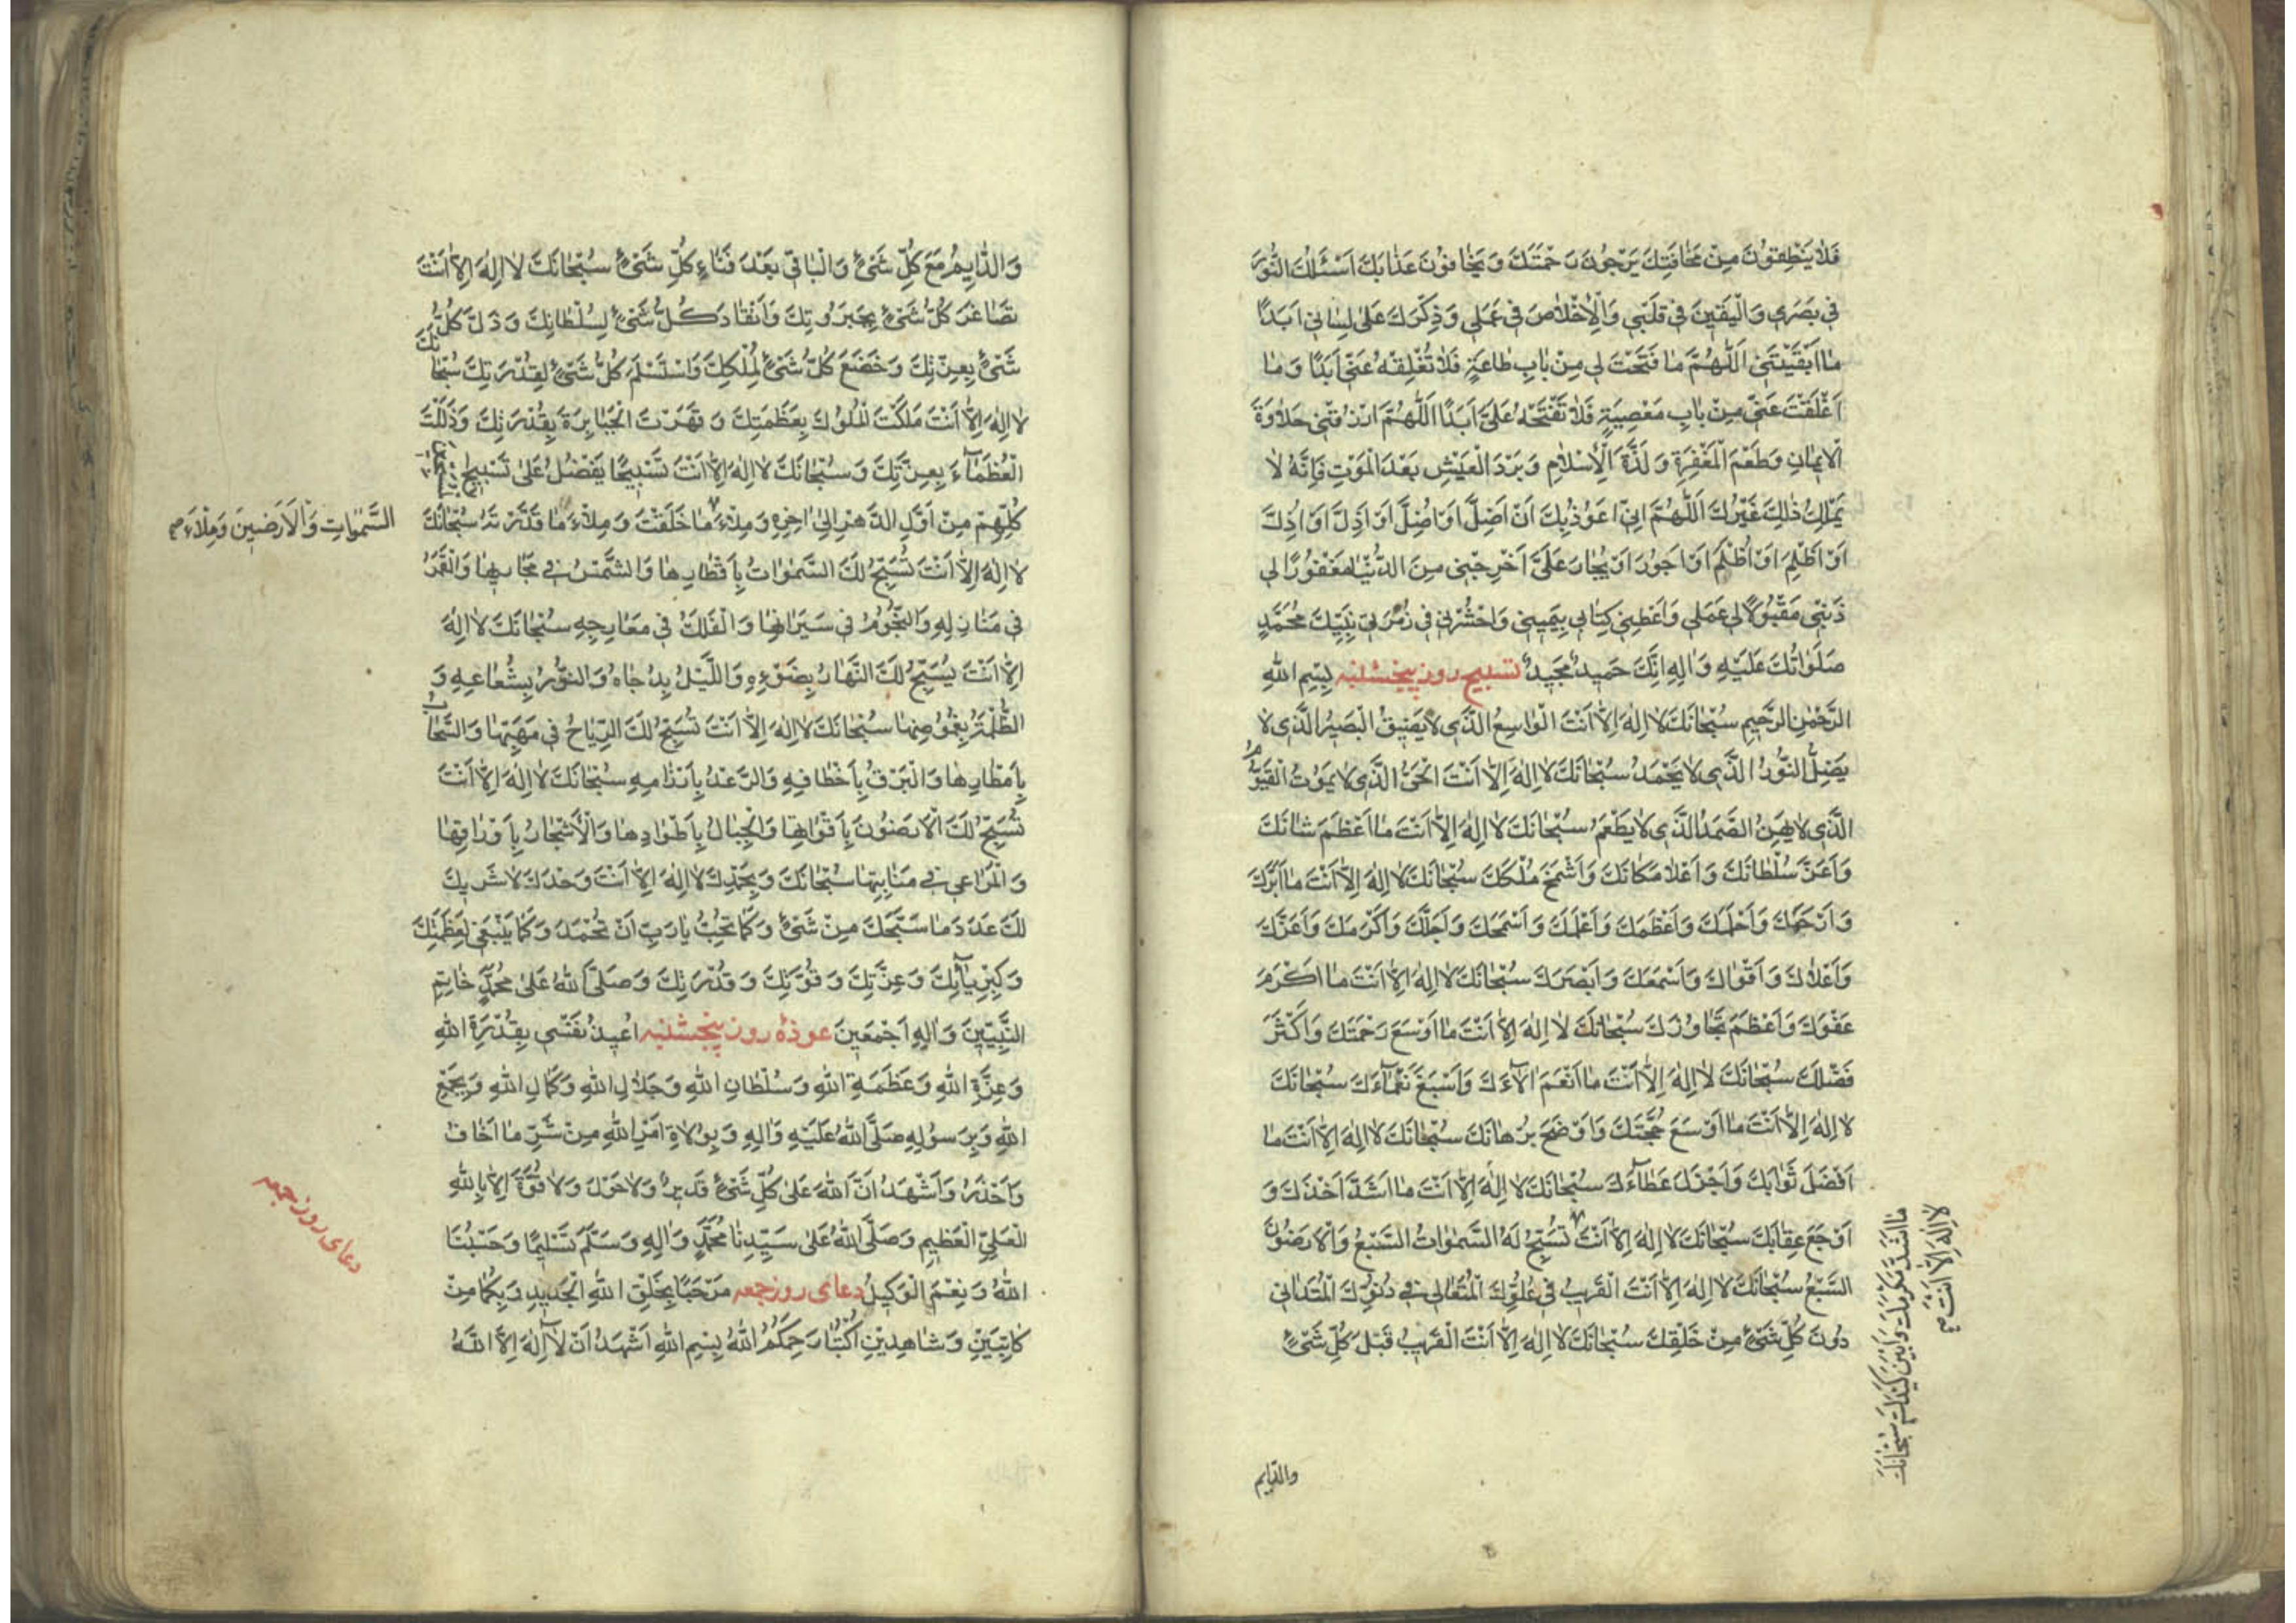 فَلا يَنْطِقُونَ مِنْ مَخافَتِكَ يَرْجُونَ رَحْمَتَكَ وَ يَخافُونَ عَذابَكَ اَسْئَلُكَ النُّورَ
في بَصَري وَ الْيَقينَ في قَلْبي وَ الْاِخْلاصَ في عَمَلي وَ ذِكْرَكَ عَلى لِساني اَبَدًا
ما اَبْقَيْتَني اَللّهُمَّ ما فَتَحْتَ لي مِنْ بابِ طاعَةٍ فَلا تُغْلِقْهُ عَنّي اَبَدًا وَ ما
اَغْلَقْتَ عَنّي مِنْ بابِ مَعْصِيَةٍ فَلا تَفْتَحْهُ عَلَيَّ اَبَدًا اَللّهُمَّ ارْزُقْني حَلاوَةَ
الْايمانِ وَ طَعْمَ الْمَغْفِرَةِ وَ لَذَّةَ الْاِسْلامِ وَ بَرْدَ الْعَيْشِ بَعْدَ الْمَوْتِ فَاِنَّهُ لا
يَمْلِكُ ذلِكَ غَيْرُكَ اَللّهُمَّ اِنّي اَعُوذُ بِكَ اَنْ اَضِلَّ اَوْ اُضِلَّ اَوْ اَذِلَّ اَوْ اُذِلَّ
اَوْ اَظْلِمَ اَوْ اُظْلَمَ اَوْ اَجُورَ اَوْ يُجارَ عَلَيَّ اَخْرِجْني مِنَ الدُّنْيا مَغْفُورًا لي
ذَنْبي مَقْبُولًا لي عَمَلي وَ اَعْطِني كِتابي بِيَميني وَ احْشُرْني في زُمْرَةِ نَبِيِّكَ مُحَمَّدٍ
صَلَواتُكَ عَلَيْهِ وَ الِهِ اِنَّكَ حَميدٌ مَجيدٌ تسبيح روز پنجشنبه بِسْمِ اللّهِ
الرَّحْمنِ الرَّحيمِ سُبْحانَكَ لا اِلهَ اِلّا اَنْتَ الْواسِعُ الَّذي لا يَضيقُ الْبَصيرُ الَّذي لا
يَضِلُّ النُّورُ الَّذي لا يَخْمَدُ سُبْحانَكَ لا اِلهَ اِلّا اَنْتَ الْحَيُّ الَّذي لا يَمُوتُ الْقَيُّومُ
الَّذي لا يَهِنُ الصَّمَدُ الَّذي لا يَطْعَمُ سُبْحانَكَ لا اِلهَ اِلّا اَنْتَ ما اَعْظَمَ شانَكَ
وَ اَعَزَّ سُلْطانَكَ وَ اَعْلا مَكانَكَ وَ اَشْمَخَ مُلْكَكَ سُبْحانَكَ لا اِلهَ اِلّا اَنْتَ ما اَبَرَّكَ
وَ اَرْحَمَكَ وَ اَحْلَمَكَ وَ اَعْظَمَكَ وَ اَعْلَمَكَ وَ اَسْمَحَكَ وَ اَجَلَّكَ وَ اَكْرَمَكَ وَ اَعَزَّكَ
وَ اَعْلاكَ وَ اَقْواكَ وَ اَسْمَعَكَ وَ اَبْصَرَكَ سُبْحانَكَ لا اِلهَ اِلّا اَنْتَ ما اَكْرَمَ
عَفْوَكَ وَ اَعْظَمَ تَجاوُزَكَ سُبْحانَكَ لا اِلهَ اِلّا اَنْتَ ما اَوْسَعَ رَحْمَتَكَ وَ اَكْثَرَ
فَضْلَكَ سُبْحانَكَ لا اِلهَ اِلّا اَنْتَ ما اَنْعَمَ الآءَكَ وَ اَسْبَغَ نَعْمآءَكَ سُبْحانَكَ
لا اِلهَ اِلّا اَنْتَ ما اَوْسَعَ حُجَّتَكَ وَ اَوْضَحَ بُرْهانَكَ سُبْحانَكَ لا اِلهَ اِلّا اَنْتَ ما
اَفْضَلَ ثَوابَكَ وَ اَجْزَلَ عَطآءَكَ سُبْحانَكَ لا اِلهَ اِلّا اَنْتَ ما اَشَدَّ اَخْذَكَ وَ
اَوْجَعَ عِقابَكَ سُبْحانَكَ لا اِلهَ اِلّا اَنْتَ تُسَبِّحُ لَهُ السَّمواتُ السَّبْعُ وَ الْاَرَضُونَ
السَّبْعُ سُبْحانَكَ لا اِلهَ اِلّا اَنْتَ الْقَريبُ في عُلُوِّكَ الْمُتَعالي في دُنُوِّكَ الْمُتَداني
دُونَ كُلِّ شَيْءٍ مِنْ خَلْقِكَ سُبْحانَكَ لا اِلهَ اِلّا اَنْتَ الْقَريبُ قَبْلَ كُلِّ شَيْءٍ
ما اَشَدَّ مَكْرَكَ وَ اَمْتَنَ كَيْدَكَ سُبْحانَكَ
لا اِلهَ اِلّا اَنْتَ
والدّايم
وَ الدّايِمُ مَعَ كُلِّ شَيْءٍ وَ الْباقي بَعْدَ فَناءِ كُلِّ شَيْءٍ سُبْحانَكَ لا اِلهَ اِلّا اَنْتَ
تَصاغَرَ كُلُّ شَيْءٍ بِجَبَرُوتِكَ وَ انْقادَ كُلُّ شَيْءٍ لِسُلْطانِكَ وَ ذَلَّ كُلُّ
شَيْءٍ بِعِزَّتِكَ وَ خَضَعَ كُلُّ شَيْءٍ لِمُلْكِكَ وَ اسْتَسْلَمَ كُلُّ شَيْءٍ لِقُدْرَتِكَ سُبْحانَكَ
لا اِلهَ اِلّا اَنْتَ مَلَكْتَ الْمُلُوكَ بِعَظَمَتِكَ وَ قَهَرْتَ الْجَبابِرَةَ بِقُدْرَتِكَ وَ ذَلَّلْتَ
الْعُظَمآءَ بِعِزَّتِكَ وَ سُبْحانَكَ لا اِلهَ اِلّا اَنْتَ تَسْبيحًا يَفْضُلُ عَلى تَسْبيحِ
كُلِّهِمْ مِنْ اَوَّلِ الدَّهْرِ اِلى اخِرِهِ وَ مِلْاءَ ما خَلَقْتَ وَ مِلْاءَ ما قَدَّرْتَهُ سُبْحانَكَ
السَّمواتِ وَ الْاَرَضينَ وَ مِلْاءَ
لا اِلهَ اِلّا اَنْتَ تُسَبِّحُ لَكَ السَّمواتُ بِاَقْطارِها وَ الشَّمْسُ في مَجاريها وَ الْقَمَرُ
في مَنازِلِهِ وَ النُّجُومُ في سَيَرانِها وَ الْفَلَكُ في مَعارِجِهِ سُبْحانَكَ لا اِلهَ
اِلّا اَنْتَ يُسَبِّحُ لَكَ النَّهارُ بِضَوْءِهِ وَ اللَّيْلُ بِدُجاهُ وَ النُّورُ بِشُعاعِهِ وَ
الظُّلْمَةُ بِغُمُوضِها سُبْحانَكَ لا اِلهَ اِلّا اَنْتَ تُسَبِّحُ لَكَ الرِّياحُ في مَهَبِّها وَ السَّحابُ
بِاَمْطارِها وَ الْبَرْقُ بِاَخْطافِهِ وَ الرَّعْدُ بِاَرْزامِهِ سُبْحانَكَ لا اِلهَ اِلّا اَنْتَ
تُسَبِّحُ لَكَ الْاَرَضُونَ بِاَقْواتِها وَ الْجِبالُ بِاَطْوادِها وَ الْاَشْجارُ بِاَوْراقِها
وَ الْمَراعي في مَنابِتِها سُبْحانَكَ وَ بِحَمْدِكَ لا اِلهَ اِلّا اَنْتَ وَحْدَكَ لا شَريكَ
لَكَ عَدَدَ ما سَبَّحَكَ مِنْ شَيْءٍ وَ كَما تُحِبُّ يا رَبِّ اَنْ تُحْمَدَ وَ كَما يَنْبَغي لِعَظَمَتِكَ
وَ كِبْرِيآئِكَ وَ عِزَّتِكَ وَ قُوَّتِكَ وَ قُدْرَتِكَ وَ صَلَّى اللّهُ عَلى مُحَمَّدٍ خاتِمِ
النَّبِيّينَ وَ الِهِ اَجْمَعينَ عوذۀ روز پنجشنبه اُعيذُ نَفْسي بِقُدْرَةِ اللّهِ
وَ عِزَّةِ اللّهِ وَ عَظَمَةِ اللّهِ وَ سُلْطانِ اللّهِ وَ جَلالِ اللّهِ وَ كَمالِ اللّهِ وَ بِجَمْعِ
اللّهِ وَ بِرَسُولِهِ صَلَّى اللّهُ عَلَيْهِ وَ الِهِ وَ بِوُلاةِ اَمْرِ اللّهِ مِنْ شَرِّ ما اَخافُ
وَ اَحْذَرُ وَ اَشْهَدُ اَنَّ اللّهَ عَلى كُلِّ شَيْءٍ قَديرٌ وَ لا حَوْلَ وَ لا قُوَّةَ اِلّا بِاللّهِ
الْعَلِيِّ الْعَظيمِ وَ صَلَّى اللّهُ عَلى سَيِّدِنا مُحَمَّدٍ وَ الِهِ وَ سَلَّمَ تَسْليمًا وَ حَسْبُنَا
اللّهُ وَ نِعْمَ الْوَكيلُ دعاى روز جمعه مَرْحَبًا بِخَلْقِ اللّهِ الْجَديدِ وَ بِكُما مِنْ
كاتِبَيْنِ وَ شاهِدَيْنِ اُكْتُبا رَحِمَكُمُ اللّهُ بِسْمِ اللّهِ اَشْهَدُ اَنْ لآ اِلهَ اِلَّا اللّهُ
دعاى روز جمعه